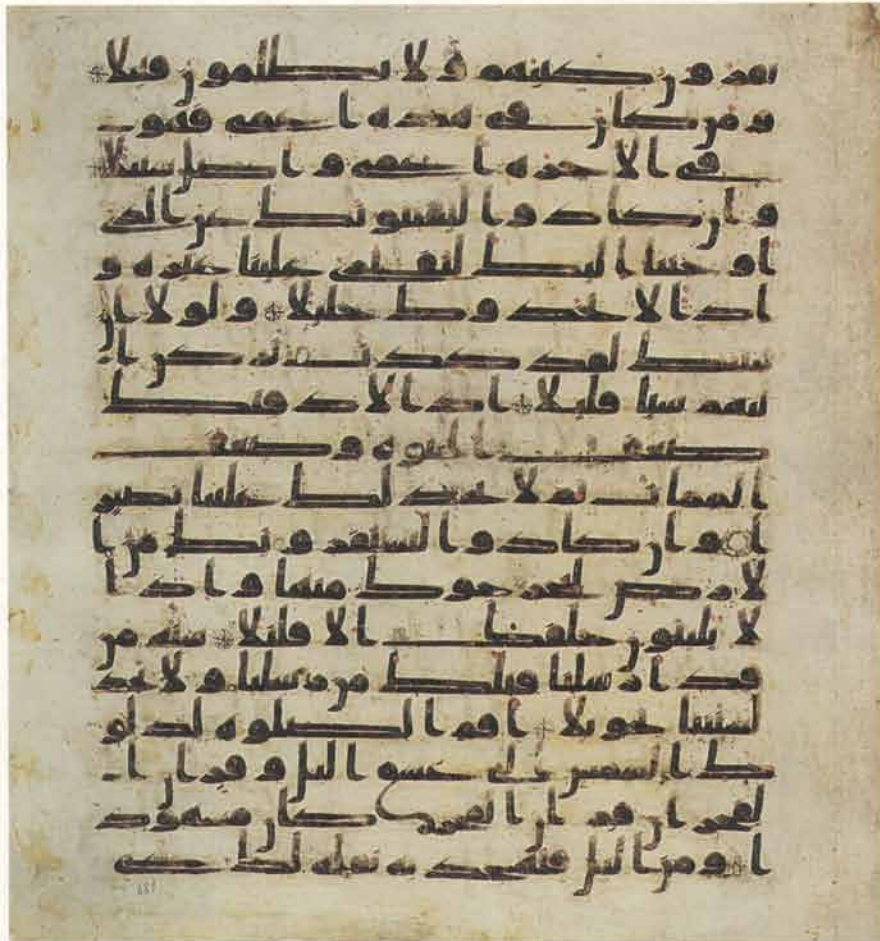 يقرون كتبهم ولا يظلمون فتيلا
ومن كان في هذه اعمى فهو
في الاخرة اعمى واضل سبيلا
وان كادوا ليفتنونك عن الذي
اوحينا اليك لتفتري علينا غيره و
اذا لاتخذوك خليلا ولولا ان
ثبتنك لقد كدت تركن ا
ليهم شيا قليلا اذا لاذقنك
ضعف الحيوة وضعف
الممات ثم لا تجد لك علينا نصير
ا وان كادوا ليستفزونك من ا
لارض ليخرجوك منها واذا
لا يلبثون خلفك الا قليلا سنة من
قد ارسلنا قبلك من رسلنا ولا تجد
لسنتنا تحويلا اقم الصلوة لدلو
ك الشمس الى غسق اليل وقران ا
لفجر ان قران الفجر كان مشهود
ا ومن اليل فتهجد به نفلة لك عسى